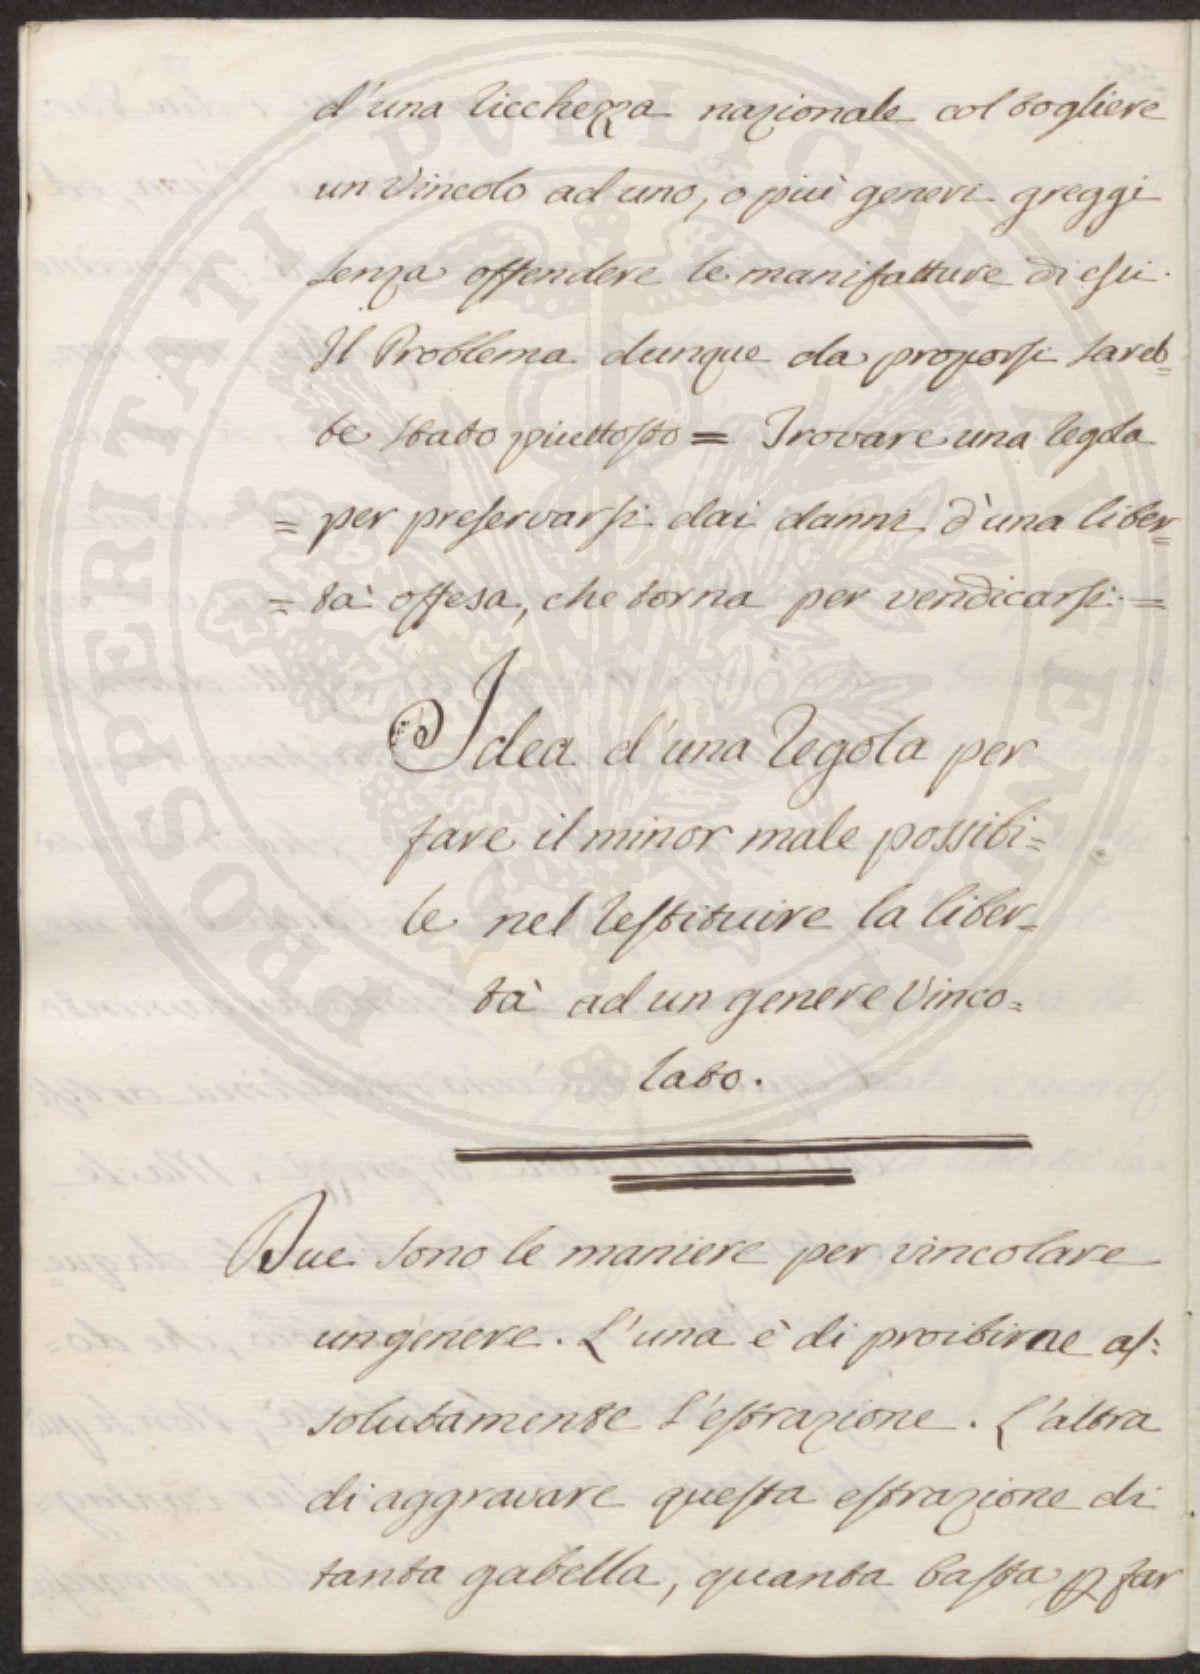 d'una ricchezza nazionale col togliere
un Vincolo ad uno, o più generi greggi
senza offendere le manifatture di essi.
Il Problema dunque da proporsi sareb=
be stato piuttosto = Trovare una regola
= per preservarsi dai danni d'una liber=
= tà offesa, che torna per vendicarsi. =
Idea d'una regola per
fare il minor male possibi=
le nel restituire la liber=
tà ad un genere Vinco=
lato.
Due sono le maniere per vincolare
un genere. L'una è di proibirne as=
solutamente l'estrazione. L'altra
di aggravare questa estrazione di
tanta gabella, quanta basta p far
PROSPERITATI PVBLICAE AVGENDAE